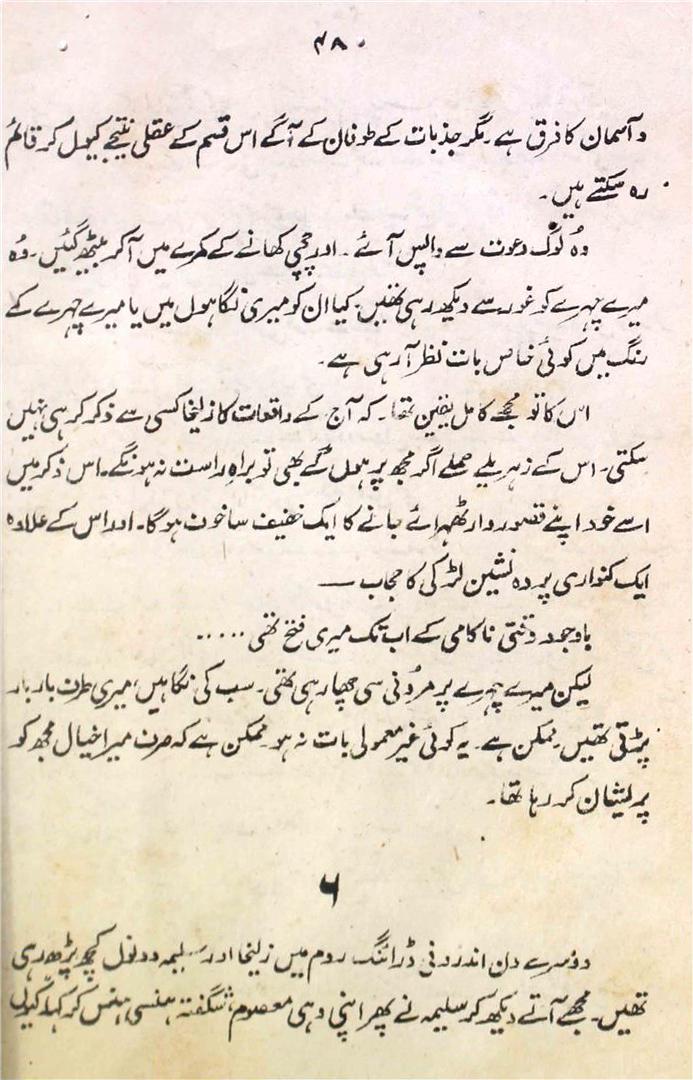 ۴۸
و آسمان کا فرق ہے۔ مگر جذبات کے طوفان کے آگے اس قسم کے عقلی نتیجے کیوں کر قائم
رہ سکتے ہیں۔
وُہ لوگ دعوت سے واپس آئے۔ اور چچی کھانے کے کمرے میں آکر بیٹھ گئیں۔ وُہ
میرے چہرے کو غور سے دیکھ رہی تھیں۔ کیا ان کو میری نگاہوں میں یا میرے چہرے کے
رنگ میں کوئی خاص بات نظر آ رہی ہے۔
اس کا تو مجھے کامل یقین تھا۔ کہ آج کے واقعات کا زلیخا کسی سے ذکر کر ہی نہیں
سکتی۔ اس کے زہریلے حملے اگر مجھ پر ہوں گے بھی تو براہِ راست نہ ہونگے۔ اس ذکر میں
اسے خود اپنے قصوروار ٹھہرائے جانے کا ایک خفیف ساخوف ہوگا۔ اور اس کے علاوہ
ایک کنواری پردہ نشین لڑکی کا حجاب —
باوجود وقتی ناکامی کے اب تک میری فتح تھی.....
لیکن میرے چہرے پر مرُدنی سی چھا رہی تھی۔ سب کی نگاہیں، میری طرف بار بار
پڑتی تھیں۔ ممکن ہے۔ یہ کوئی غیر معمولی بات نہ ہو۔ ممکن ہے کہ صرف میرا خیال مجھ کو
پریشان کر رہا تھا۔
۶
دوُسرے دن اندرونی ڈرائنگ روم میں زلیخا اور سلیمہ دونوں کچھ پڑھ رہی
تھیں۔ مجھے آتے دیکھ کر سلیمہ نے پھر اپنی وہی معصوم، شگفتہ ہنسی ہنس کر کہا کیوں